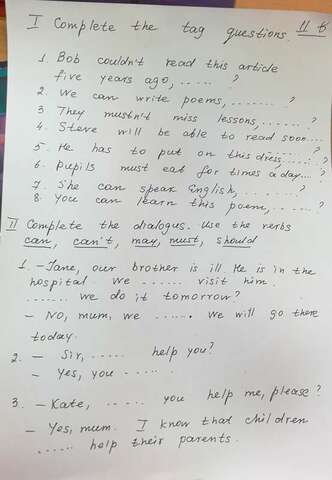 I Complete the tag questions. II б
1. Bob couldn't read this article
five years ago, ...... ?
2. We can write poems, ....... ?
3. They mustn't miss lessons, ...... ?
4. Steve will be able to read soon....
5. He has to put on this dress...... ?
6. Pupils must eat for times a day.... ?
7. She can speak English, ....... ?
8. You can learn this poem, ...... ?
II Complete the dialogus. Use the verbs
can, can't, may, must, should
1. - Jane, our brother is ill He is in the
hospital. We ...... visit him.
....... we do it tomorrow?
- No, mum, we ...... We will go there
today.
2. - Sir, ..... help you?
- Yes, you ......
3. - Kate, ..... you help me, please?
- Yes, mum. I know that children
...... help their parents.